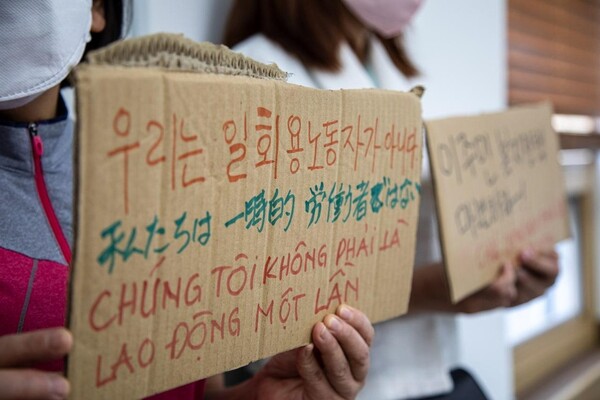 우리는 일회용노동자가 아니다
私たちは 一時的 労働者ではない
CHÚNG TÔI KHÔNG PHẢI LÀ
LAO ĐỘNG MỘT LẦN
이주민